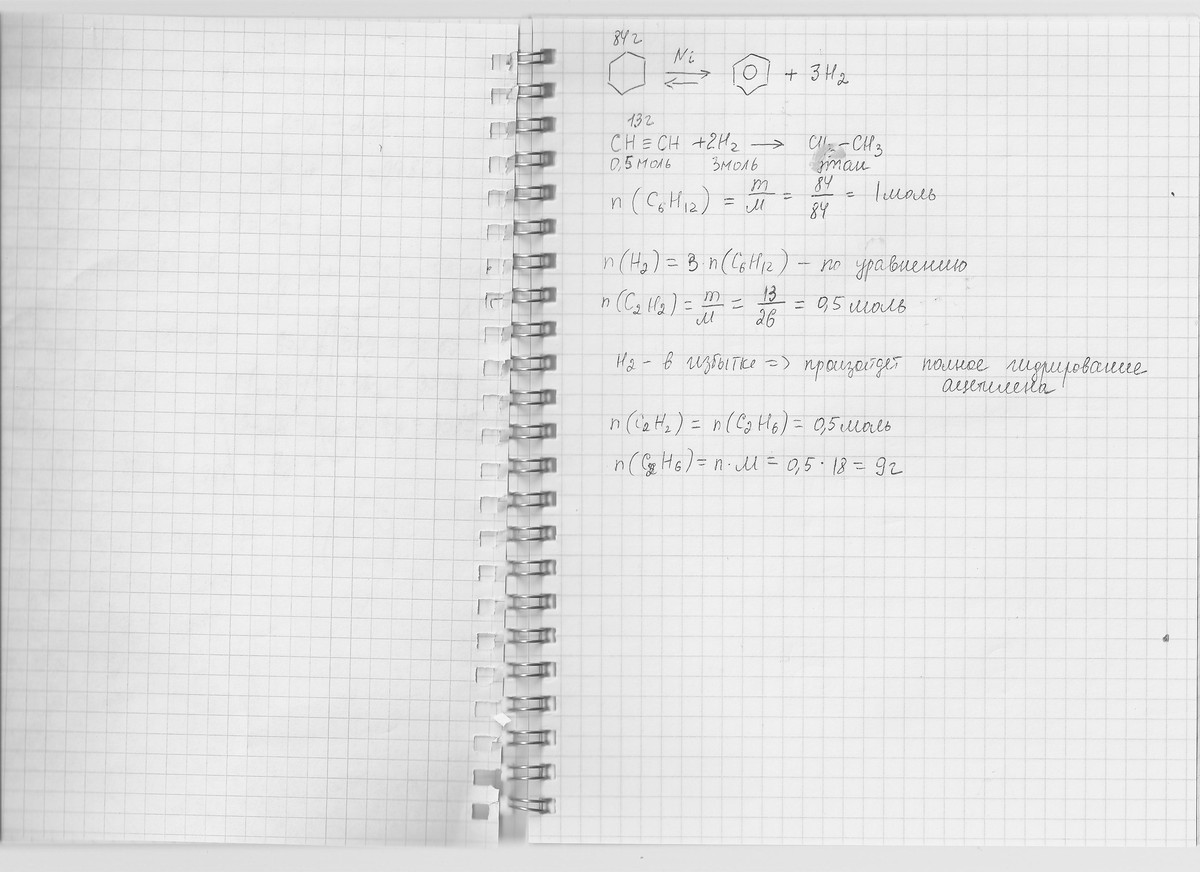 84г
Ni
+ 3H₂
13г
CH≡CH +2H₂ → CH₃-CH₃
0,5 моль 3моль этан
n(C₆H₁₂) = m/M = 84/84 = 1моль
n(H₂) = 3·n(C₆H₁₂) – по уравнению
n(C₂H₂) = m/M = 13/26 = 0,5 моль
H₂ – в избытке => произойдет полное гидрирование
ацетилена
n(C₂H₂) = n(C₂H₆) = 0,5моль
n(C₂H₆) = n·M = 0,5·18 = 9г